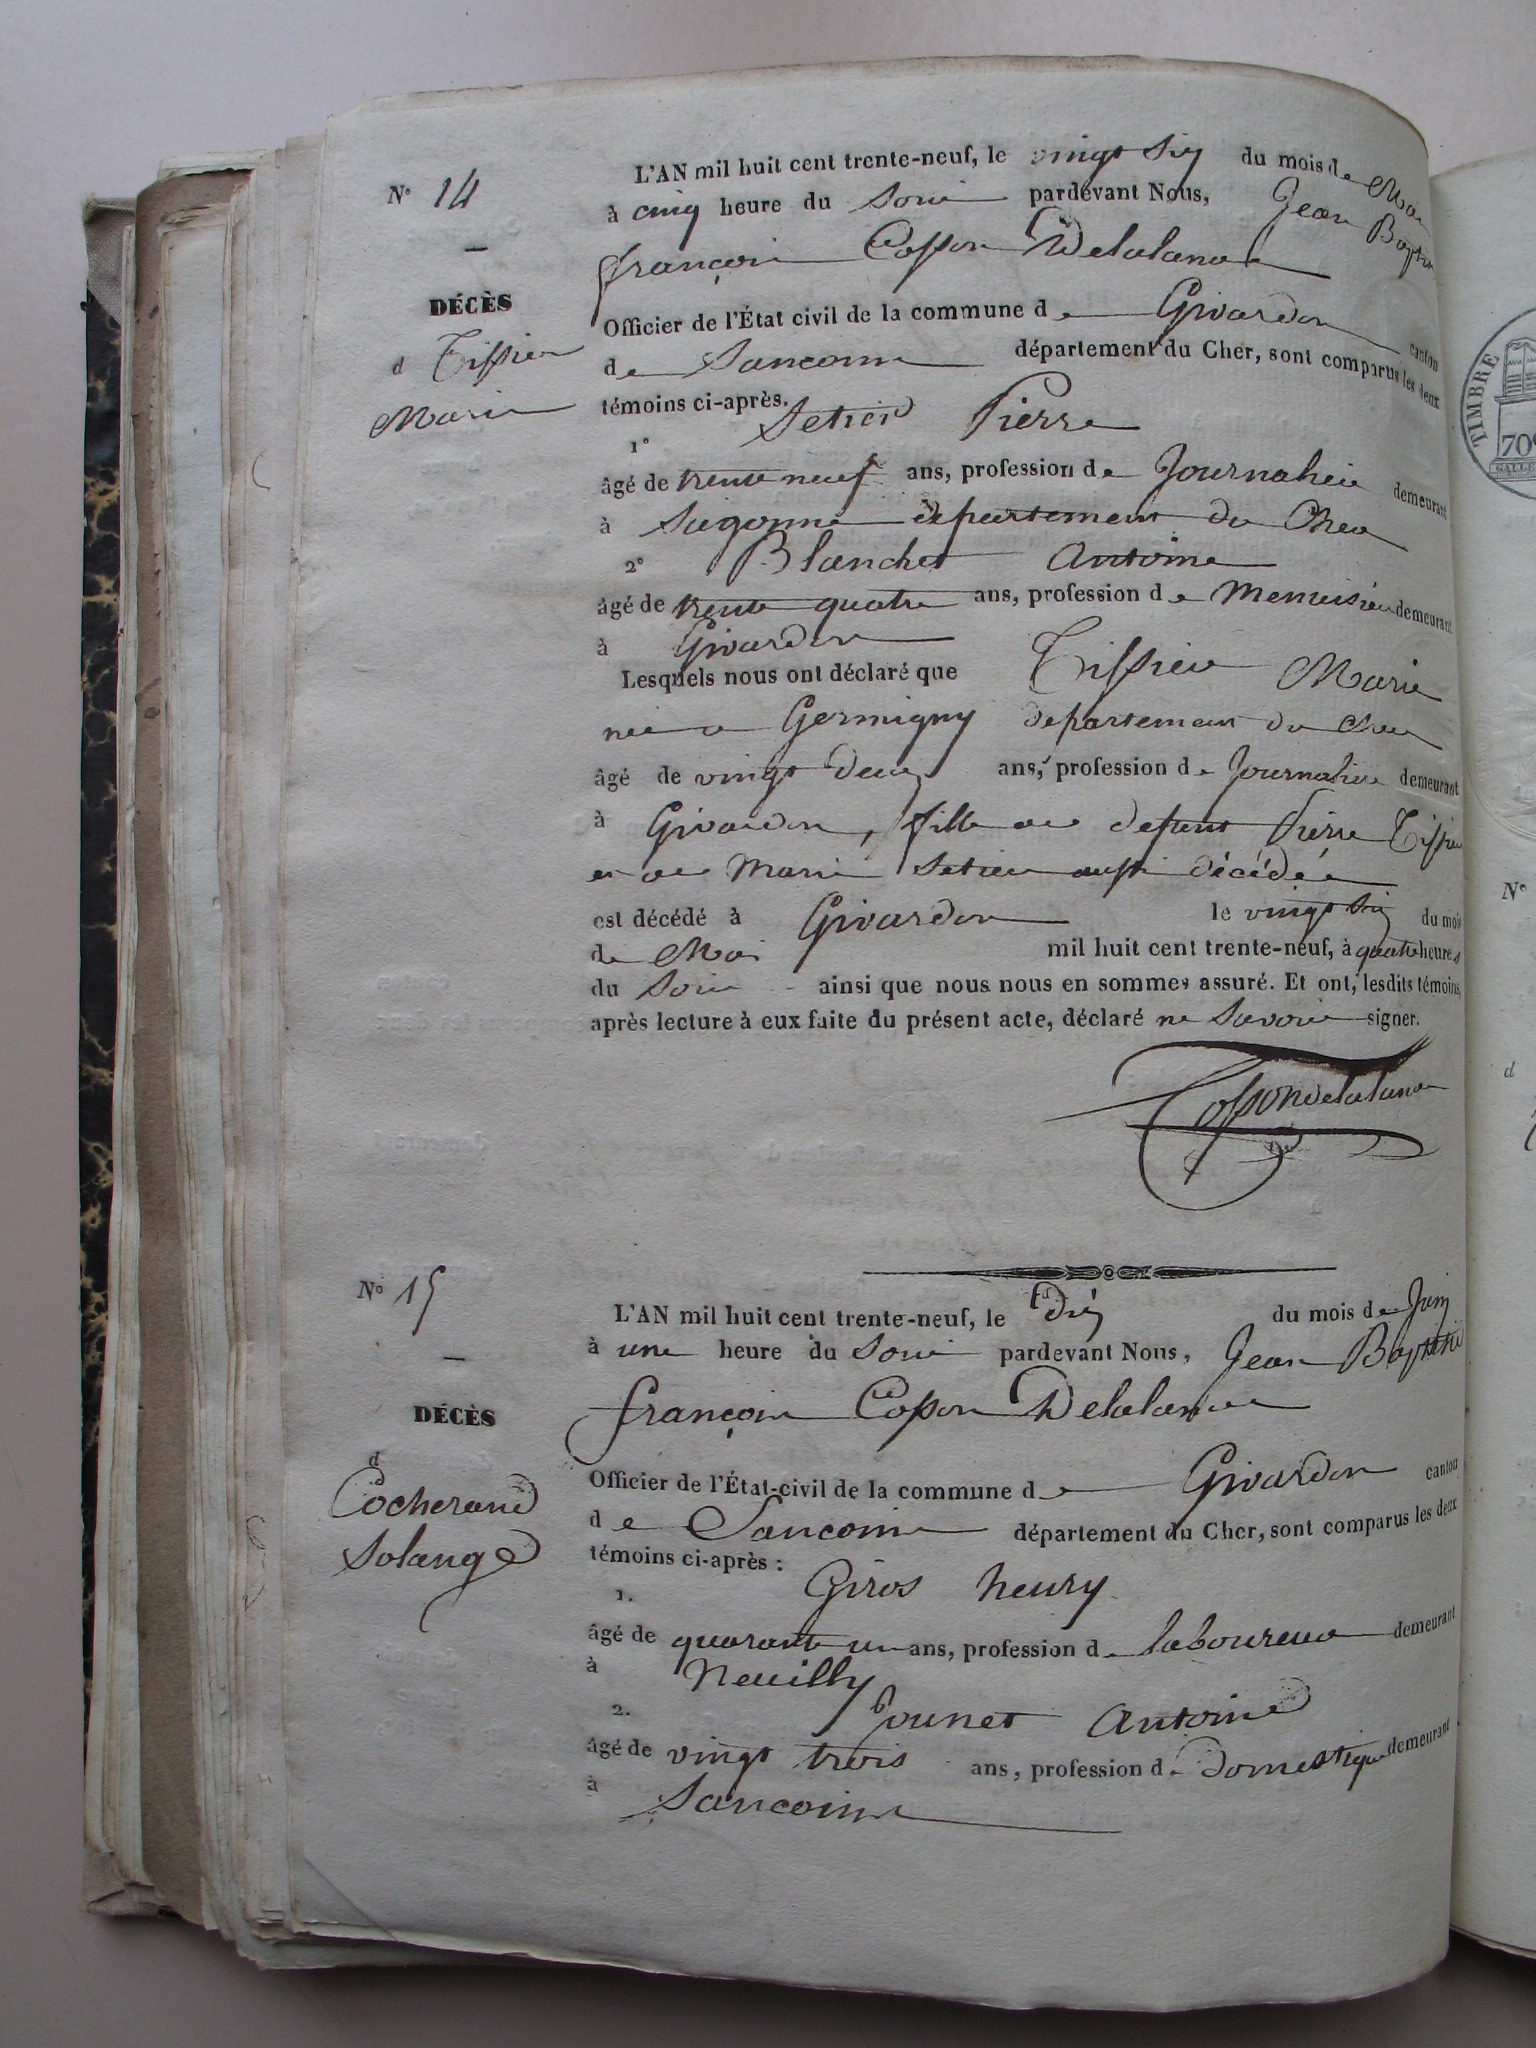 N° 14
L'AN mil huit cent trente-neuf, le vingt Six du mois de Mai
à cinq heure du Soir pardevant Nous, Jean Baptiste
françois Cosson Delalande
DÉCÈS
d Tissier
Marie
Officier de l'État civil de la commune de Givardon canton
de Sancoins département du Cher, sont comparus les deux
témoins ci-après.
1° Setier Pierre
âgé de trente neuf ans, profession de Journalier demeurant
à Sagonne département du Cher
2° Blanchet Antoine
âgé de trente quatre ans, profession de Menuisier demeurant
à Givardon
Lesquels nous ont déclaré que Tissier Marie
née a Germigny département du Cher
âgé de vingt deux ans, profession de Journalière demeurant
à Givardon, fille de defunt Pierre Tissier
et de Marie Setier aussi décédée
est décédé à Givardon le vingt Six du mois
de Mai mil huit cent trente-neuf, à quatre heures
du Soir ainsi que nous nous en sommes assuré. Et ont, lesdits témoins,
après lecture à eux faite du présent acte, déclaré ne Savoir signer.
Cossondelalande
N° 15
L'AN mil huit cent trente-neuf, le dix du mois de Juin
à une heure du Soir pardevant Nous, Jean Baptiste
françois Cosson Delalande
DÉCÈS
d
Cocherand
Solange
Officier de l'État-civil de la commune de Givardon canton
de Sancoins département du Cher, sont comparus les deux
témoins ci-après :
1. Giros henry
âgé de quarante un ans, profession de laboureur demeurant
à Neuilly
2. Jounet Antoine
âgé de vingt trois ans, profession de domestique demeurant
à Sancoins
TIMBRE
70
N°
d